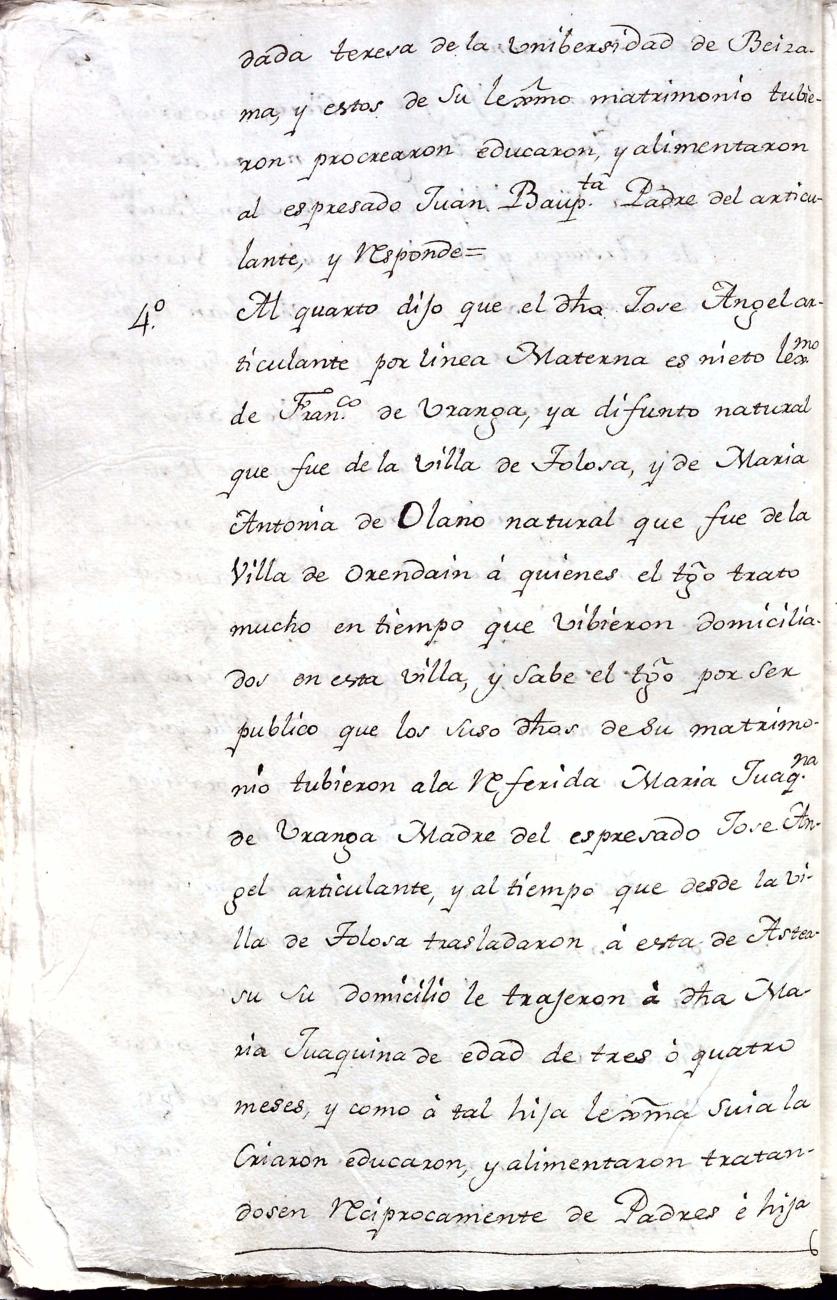 dada teresa de la Unibersidad de Beiza-
ma, y estos de su lexmo matrimonio tubie-
ron procrearon educaron, y alimentaron
al espresado Juan Baup.ta Padre del articu-
lante, y Responde=
4.o Al quarto dijo que el dho Jose Angel ar-
ticulante por linea Materna es nieto lex.mo
de Fran.co de Uranga, ya difunto natural
que fue de la Villa de Tolosa, y de Maria
Antonia de Olano natural que fue de la
Villa de Orendain á quienes el tgo trato
mucho en tiempo que vibieron domicilia-
dos en esta villa, y sabe el tgo por ser
publico que los suso dhos de su matrimo-
nio tubieron a la Referida Maria Juaq.na
de Uranga Madre del espresado Jose An-
gel articulante, y al tiempo que desde la vi-
lla de Tolosa trasladaron á esta de Astea-
su su domicilio le trajeron á dha Ma-
ria Juaquina de edad de tres ó quatro
meses, y como á tal hija lexma suia la
Criaron educaron, y alimentaron tratan-
dosen Reciprocamente de Padres é hija